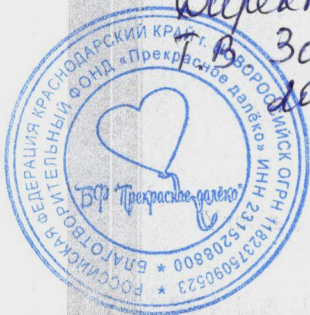 Т В
РОССИЙСКАЯ ФЕДЕРАЦИЯ КРАСНОДАРСКИЙ КРАЙ г. НОВОРОССИЙСК ОГРН 1182375090523 *
БЛАГОТВОРИТЕЛЬНЫЙ ФОНД «Прекрасное далёко» ИНН 2315208800 *
БФ "Прекрасное далёко"